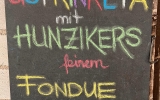 mit
HUNZIKERS
feinem
FONDUE